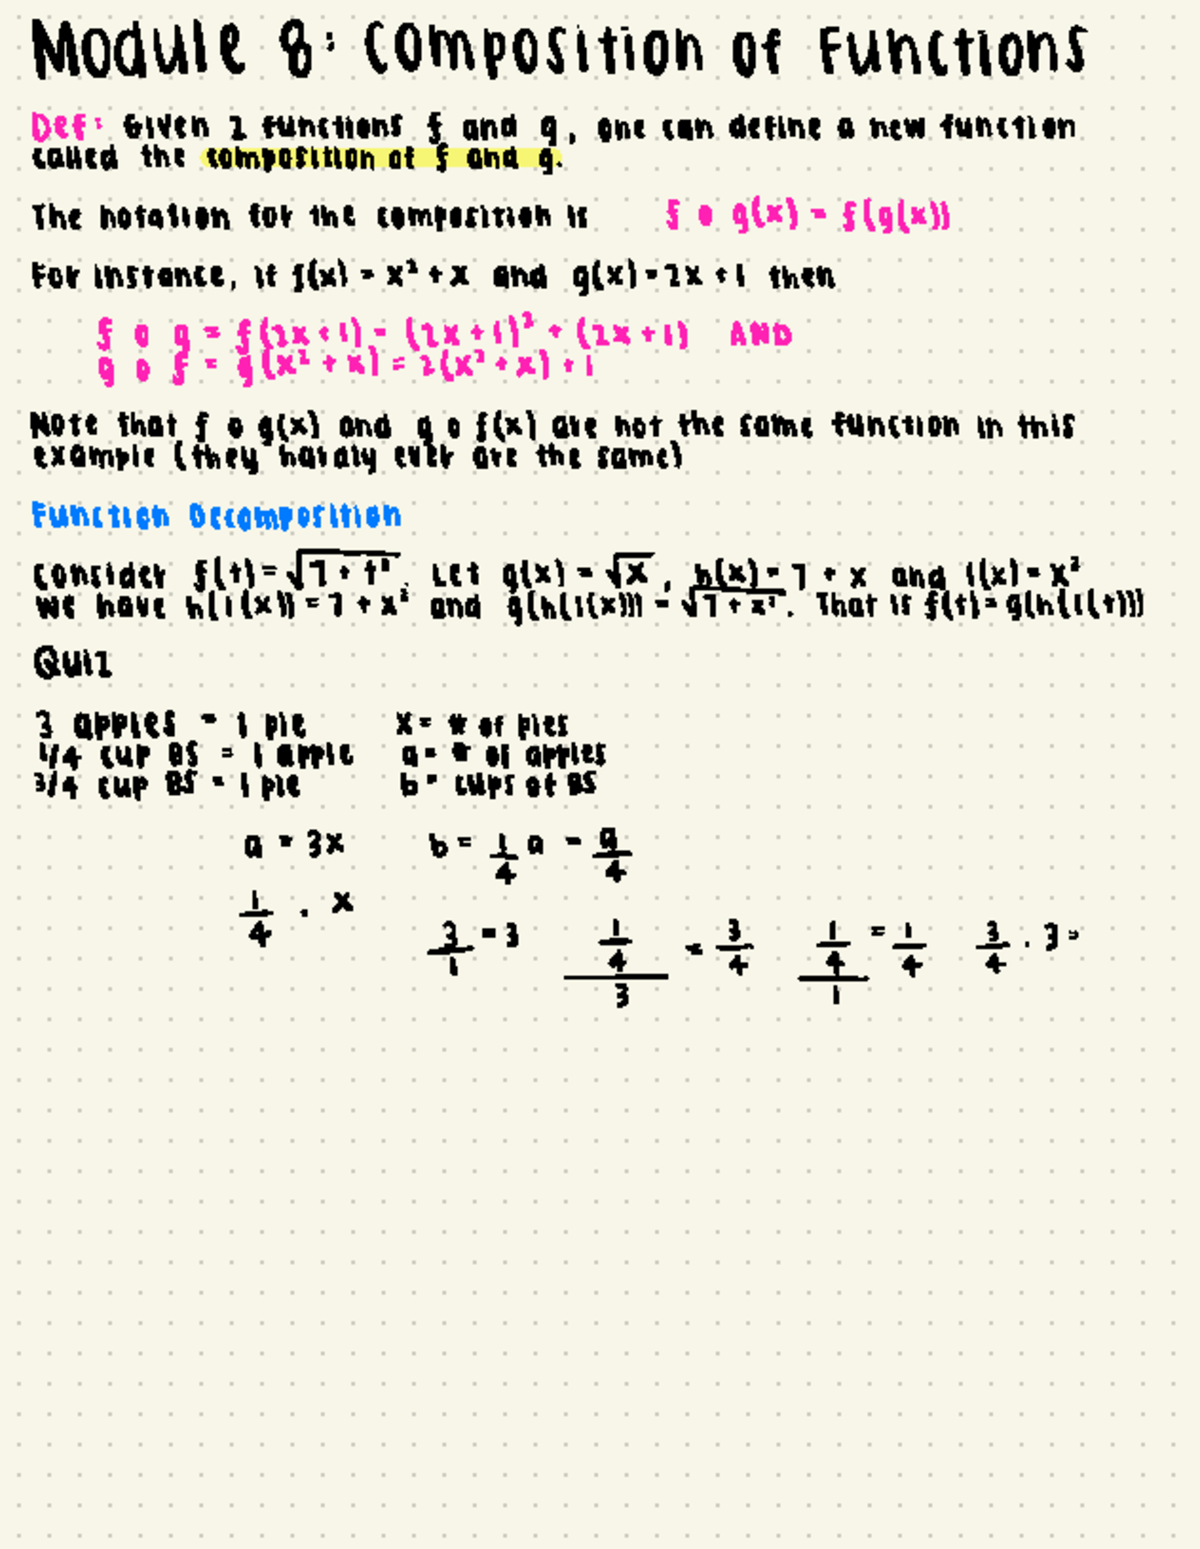 Module 8: Composition of Functions
Def: Given 2 functions f and g, one can define a new function
called the composition of f and g.
The notation for the composition is f ∘ g(x) = f(g(x))
For instance, if f(x) = x² + x and g(x) = 2x + 1 then
f ∘ g = f(2x+1) = (2x+1)² + (2x+1) AND
g ∘ f = g(x² + x) = 2(x² + x) + 1
Note that f ∘ g(x) and g ∘ f(x) are not the same function in this
example (they hardly ever are the same)
Function Decomposition
Consider f(t) = √(7 + t²). Let g(x) = √x, h(x) = 7 + x and i(x) = x²
We have h(i(x)) = 7 + x² and g(h(i(x))) = √(7 + x²). That is f(t) = g(h(i(t)))
Quiz
3 apples = 1 pie x = # of pies
1/4 cup BS = 1 apple a = # of apples
3/4 cup BS = 1 pie b = cups of BS
a = 3x b = 1/4 a = a/4
1/4 · x
3/1 = 3 (1/4)/3 = 3/4 (1/4)/1 = 1/4 3/4 · 3 =